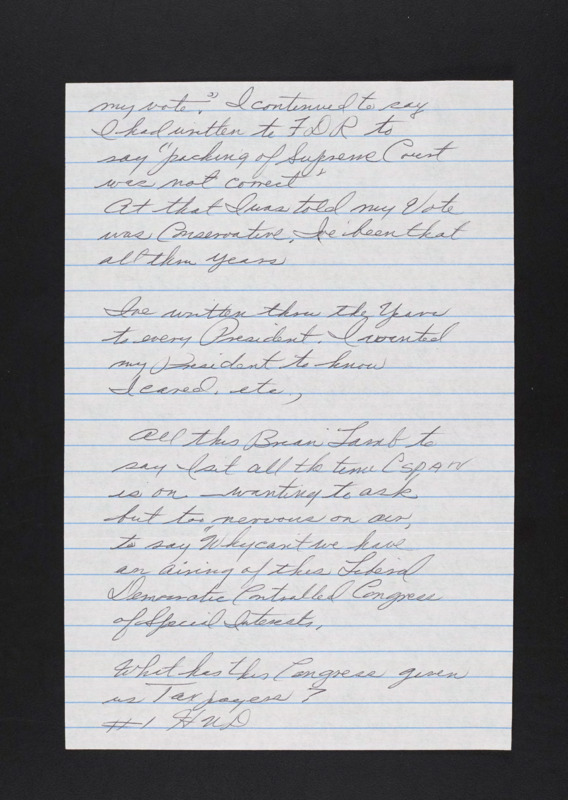 my vote." I continued to say
I had written to FDR to
say "packing of Supreme Court
was not correct"
At that I was told my Vote
was Conservative. I've been that
all thru years
I've written thru the Years
to every President. I wanted
my President to know
I cared. etc,
All this Brian Lamb to
say I sit all the time CSPAN
is on - wanting to ask
but too nervous on air,
to say "Why can't we have
an airing of this Liberal
Democratic Controlled Congress
of Special Interests.
What has this Congress given
us Taxpayers?
#1 HUD